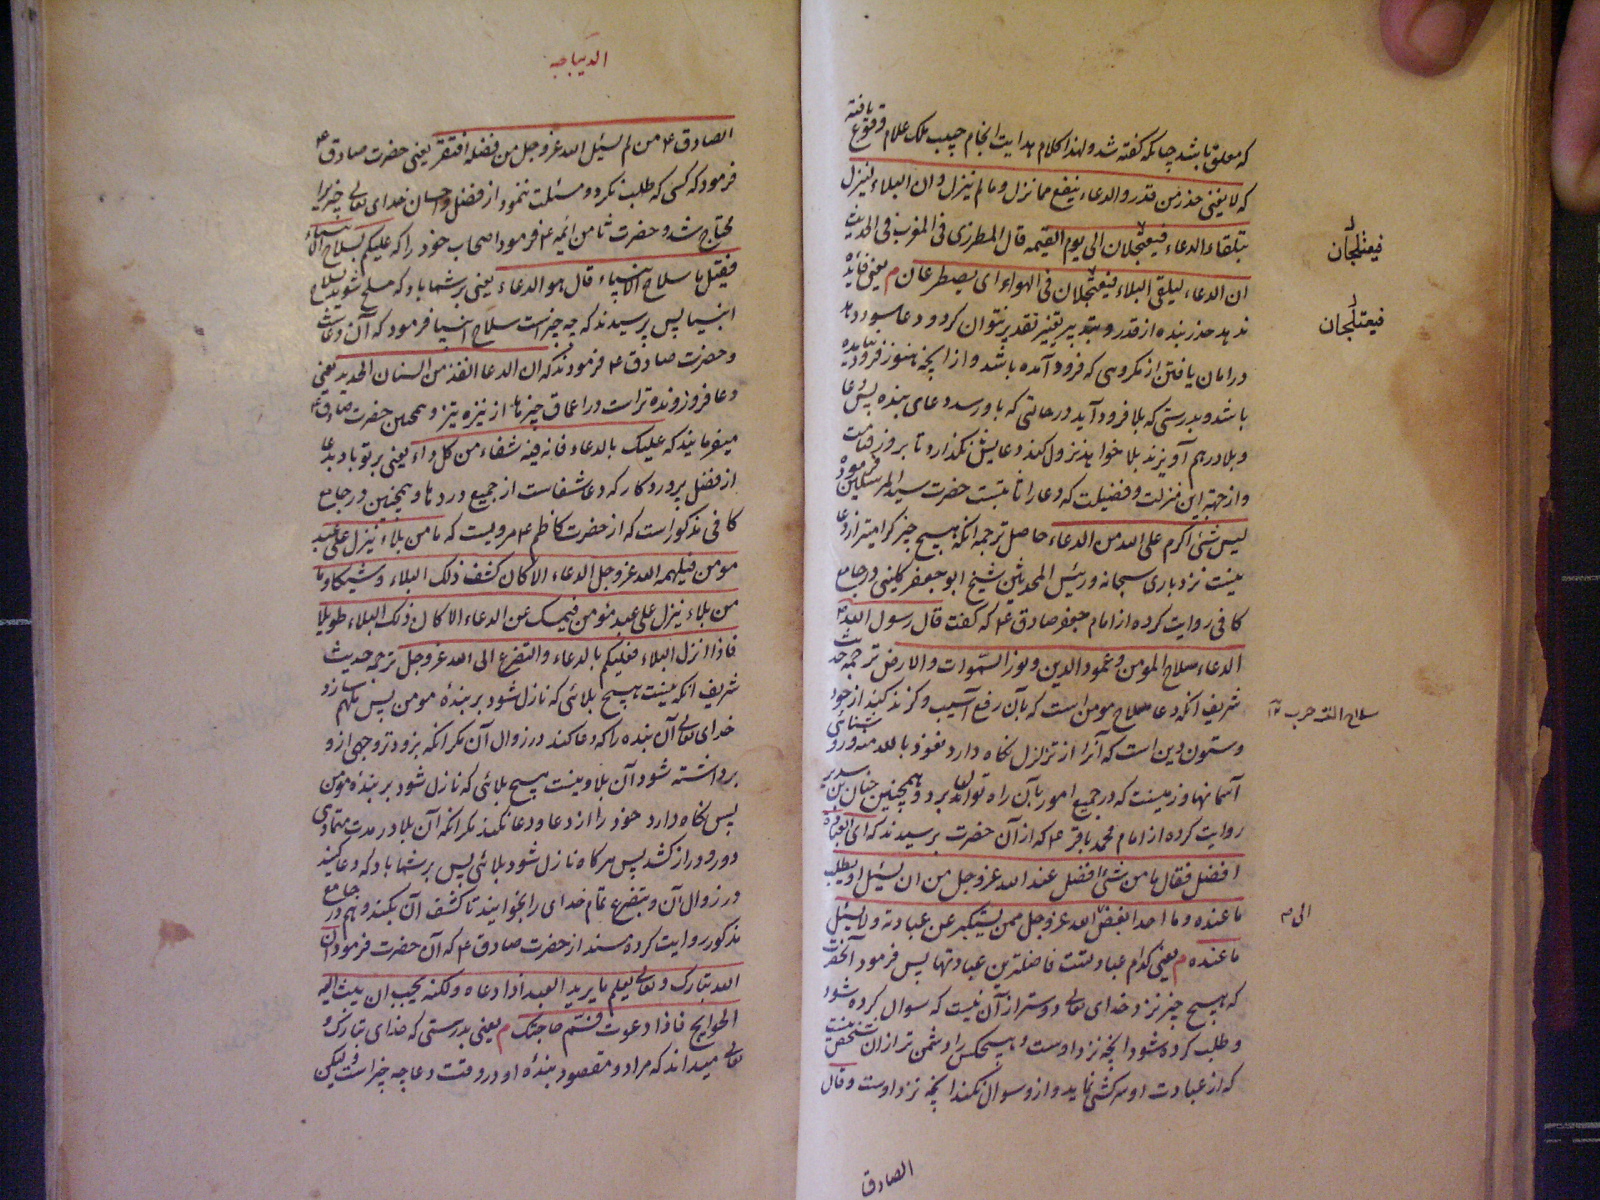 که معلق باشد چنانکه گفته شد و لهذا کلام هدایت انجام حبیب ملک علام وقوع یافته
که لا یغنی حذر من قدر و الدعاء ینفع مما نزل و ما لم ینزل و ان البلاء لینزل
فیعتلجان
بتلقاء الدعاء فیعتلجان الی یوم القیمه قال المطرزی فی المغرب فی الحدیث
ان الدعاء لیلقی البلاء فیعتلجان فی الهواء ای یصطرعان م یعنی فایده
فیعتلجان
ندهد حذر بنده از قدر و بتدبیر تغییر تقدیر نتوان کرد و دعا سود دهد
در امان یافتن از مکروهی که فرود آمده باشد و از آنچه هنوز فرود نیامده
باشد و بدرستی که بلا فرود آید در حالتی که باو رسد دعای بنده پس دعا
و بلا در هم آویزند بلا خواهد نزول کند دعایش نگذارد تا بروز قیامت
و از جهة این منزلت و فضیلت که دعا را ثابتست حضرت سید المرسلین فرموده
لیس شئ اکرم علی الله من الدعاء حاصل ترجمه آنکه هیچ چیز گرامیتر از دعا
نیست نزد باری سبحانه و رئیس المحدثین شیخ ابو جعفر کلینی در جامع
کافی روایت کرده از امام جعفر صادق ع که گفت قال رسول الله ص
الدعاء سلاح المومن و عمود الدین و نور السموات و الارض ترجمه حدیث
شریف آنکه دعا سلاح مومن است که بآن رفع آسیب و گزند کند از خود
سلاح التـ حرب
و ستون دین است که آنرا از تزلزل نگاه دارد نعوذ بالله منه و روشنائی
آسمانها و زمینست که در جمیع امور بآن راه توان برد و همچنین حنان بن سدیر
روایت کرده از امام محمد باقر ع که از آن حضرت پرسیدند که ای العبادة
افضل فقال ما من شئ افضل عند الله عز و جل من ان یسئل او یطلب
ما عنده و ما احد ابغض الله عز و جل ممن یستکبر عن عبادته و لا یسئل
الی م
ما عنده م یعنی کدام عبادتست فاضلترین عبادتها پس فرمود آنحضرت
که هیچ چیز نزد خدای تعالی دوستر از آن نیست که سوال کرده شود
و طلب کرده شود آنچه نزد اوست و هیچکس را دشمن تر از آن شخص نیست
که از عبادت او سرکشی نماید و ازو سوال نکند آنچه نزد اوست و قال
الصادق
الدیباجه
الصادق ع من لم یسئل الله عز و جل من فضله افتقر یعنی حضرت صادق ع
فرمود که کسی که طلب نکرد و مسئلت ننمود از فضل و احسان خدای تعالی چیزیرا
محتاج شد و حضرت ثامن ائمه ع فرمود اصحاب خود را که علیکم بسلاح الانبیاء
فقیل ما سلاح الانبیاء قال هو الدعاء یعنی بر شما باد که مسلح شوید بسلاح
انبیا پس پرسیدند که چه چیز است سلاح انبیا فرمود که آن دعاست
و حضرت صادق ع فرمودند که ان الدعا انفذ من السنان الحدید یعنی
دعا فرو رونده تر است در اعماق چیزها از نیزه تیز و همچنین حضرت صادق ع
میفرمایند که علیک بالدعاء فانه فیه شفاء من کل داء یعنی بر تو باد بدعا
از فضل پروردگار که دعا شفاست از جمیع دردها و همچنین در جامع
کافی مذکور است که از حضرت کاظم ع مرویست که ما من بلاء ینزل علی عبد
مومن فیلهمه الله عز و جل الدعاء الا کان کشف ذلک البلاء وشیکا و ما
من بلاء ینزل علی عبد مومن فیمسک عن الدعاء الا کان ذلک البلاء طویلا
فاذا انزل البلاء فعلیکم بالدعاء و التضرع الی الله عز و جل ترجمه حدیث
شریف آنکه نیست هیچ بلائی که نازل شود بر بنده مومن پس ملهم سازد
خدای تعالی آن بنده را که دعا کند در زوال آن مگر آنکه بزودتر وجهی ازو
برداشته شود آن بلا و نیست هیچ بلائی که نازل شود بر بنده مومن
پس نگاه دارد خود را از دعا و دعا نکند مگر آنکه آن بلا در مدت متمادی
دور و دراز کشد پس هرگاه نازل شود بلائی پس بر شما باد که دعا کنید
در زوال آن و بتضرع تمام خدای را بخوانید تا کشف آن بکند و هم در جامع
مذکور روایت کرده سند از حضرت صادق ع که آن حضرت فرمود ان
الله تبارک و تعالی یعلم ما یرید العبد اذا دعاه و لکنه یحب ان یبث الیه
الحوایج فاذا دعوت فسم حاجتک م یعنی بدرستی که خدای تبارک و
تعالی میداند که مراد و مقصود بنده او در وقت دعا چه چیز است و لیکن